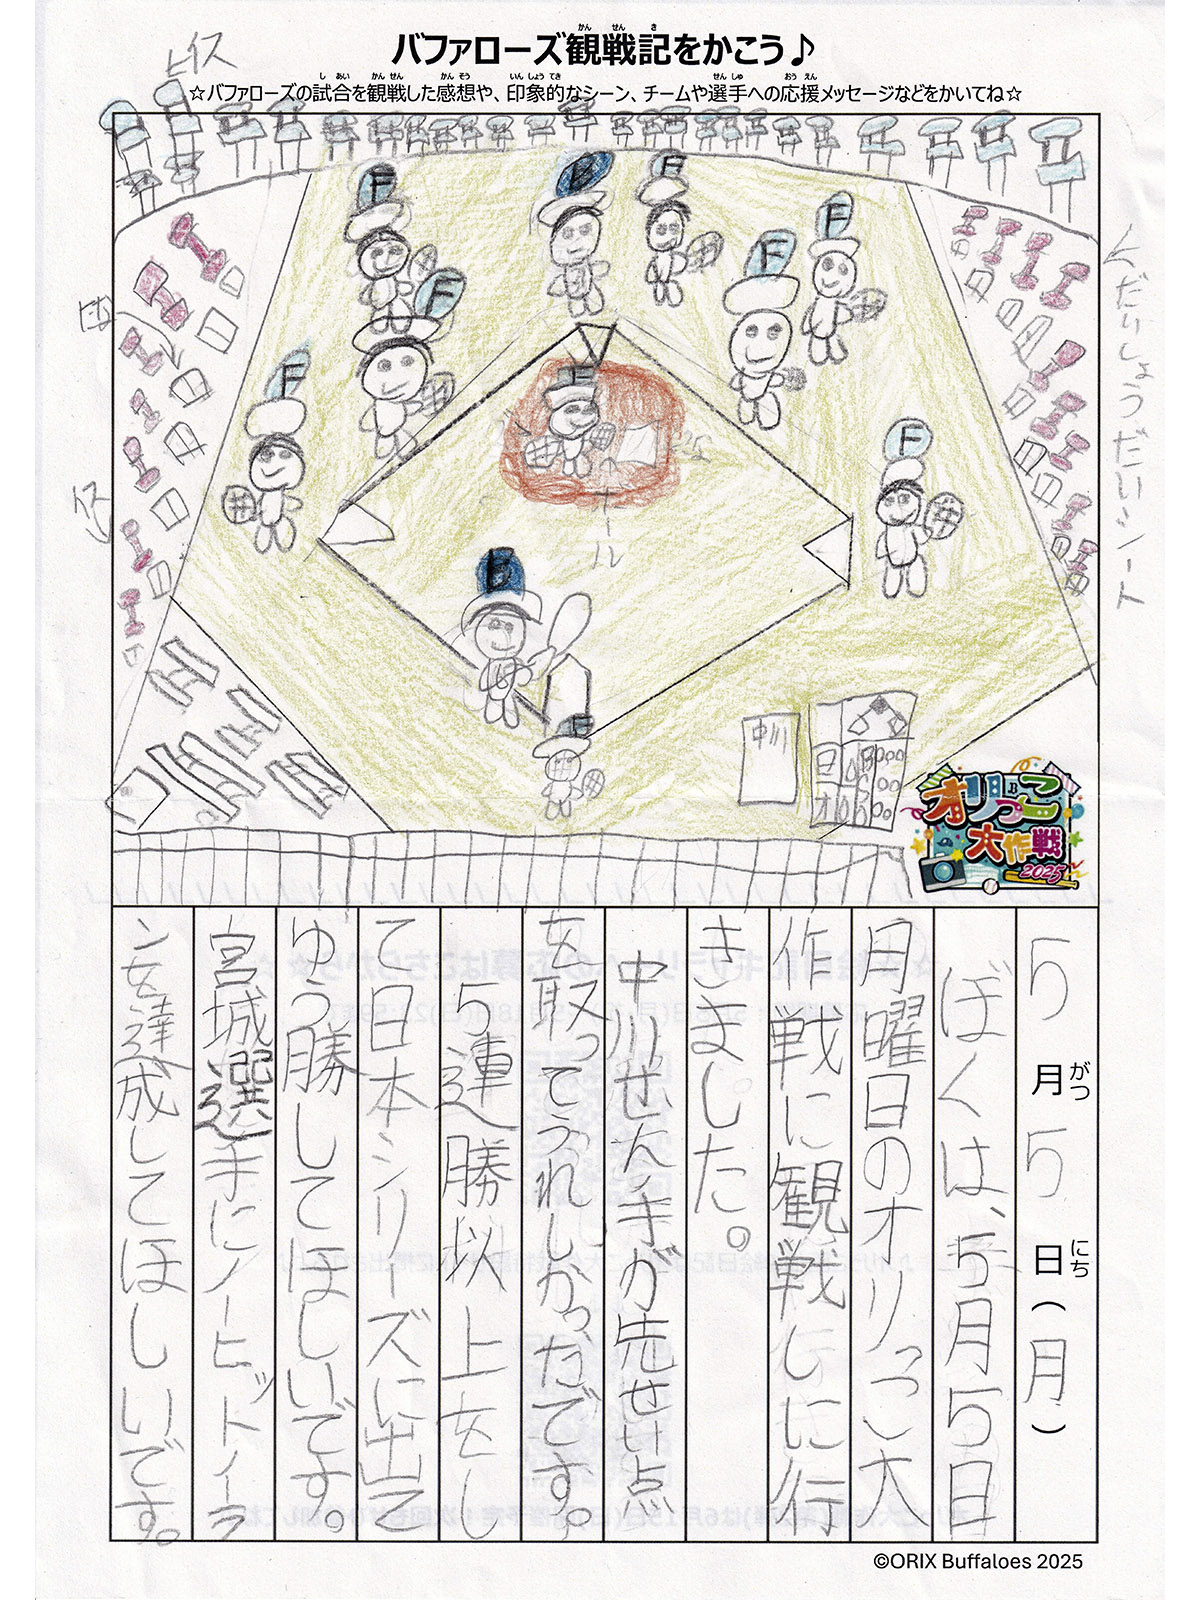 バファローズ観戦記をかこう♪
☆バファローズの試合を観戦した感想や、印象的なシーン、チームや選手への応援メッセージなどをかいてね☆
F
B
F
F
F
F
F
F
F
F
B
F
中川
日
オ
オリっこ
大作戦
2025
5月5日(月)
ぼくは、5月5日
月曜日のオリっこ大
作戦に観戦しに行
きました。
中川せん手が先せい点
を取ってうれしかったです。
5連勝以上をし
て日本シリーズに出て
ゆう勝してほしいです。
宮城選手にノーヒットノーラ
ンを達成してほしいです。
©ORIX Buffaloes 2025